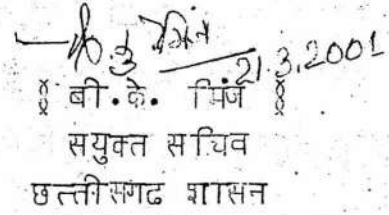 21.3.2001
बी. के. मिंज
सयुक्त सचिव
छत्तीसगढ शासन